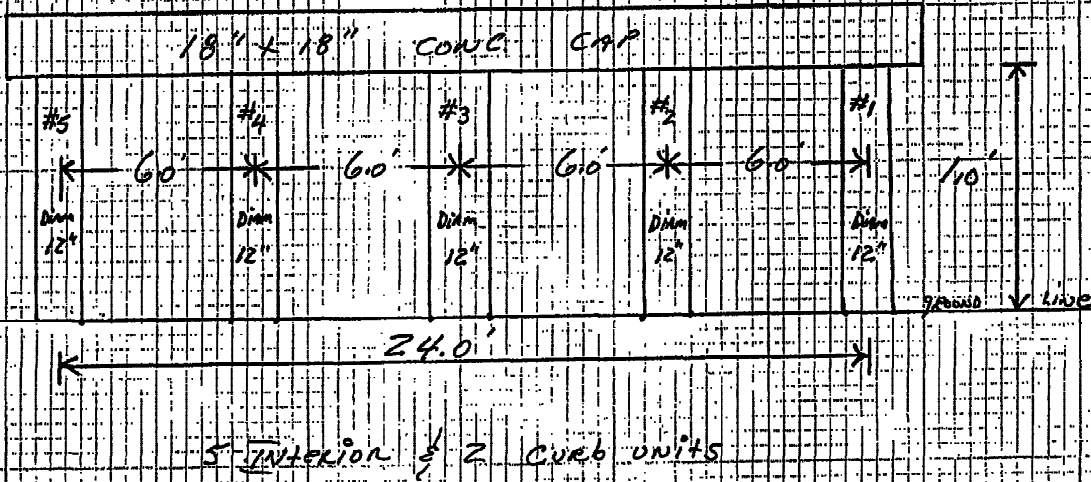 18" x 18" CONC. CAP
#5 #4 #3 #2 #1
6.0' 6.0' 6.0' 6.0' 10'
Diam 12" Diam 12" Diam 12" Diam 12" Diam 12"
GROUND LINE
24.0'
5 INterior & 2 Curb uNits